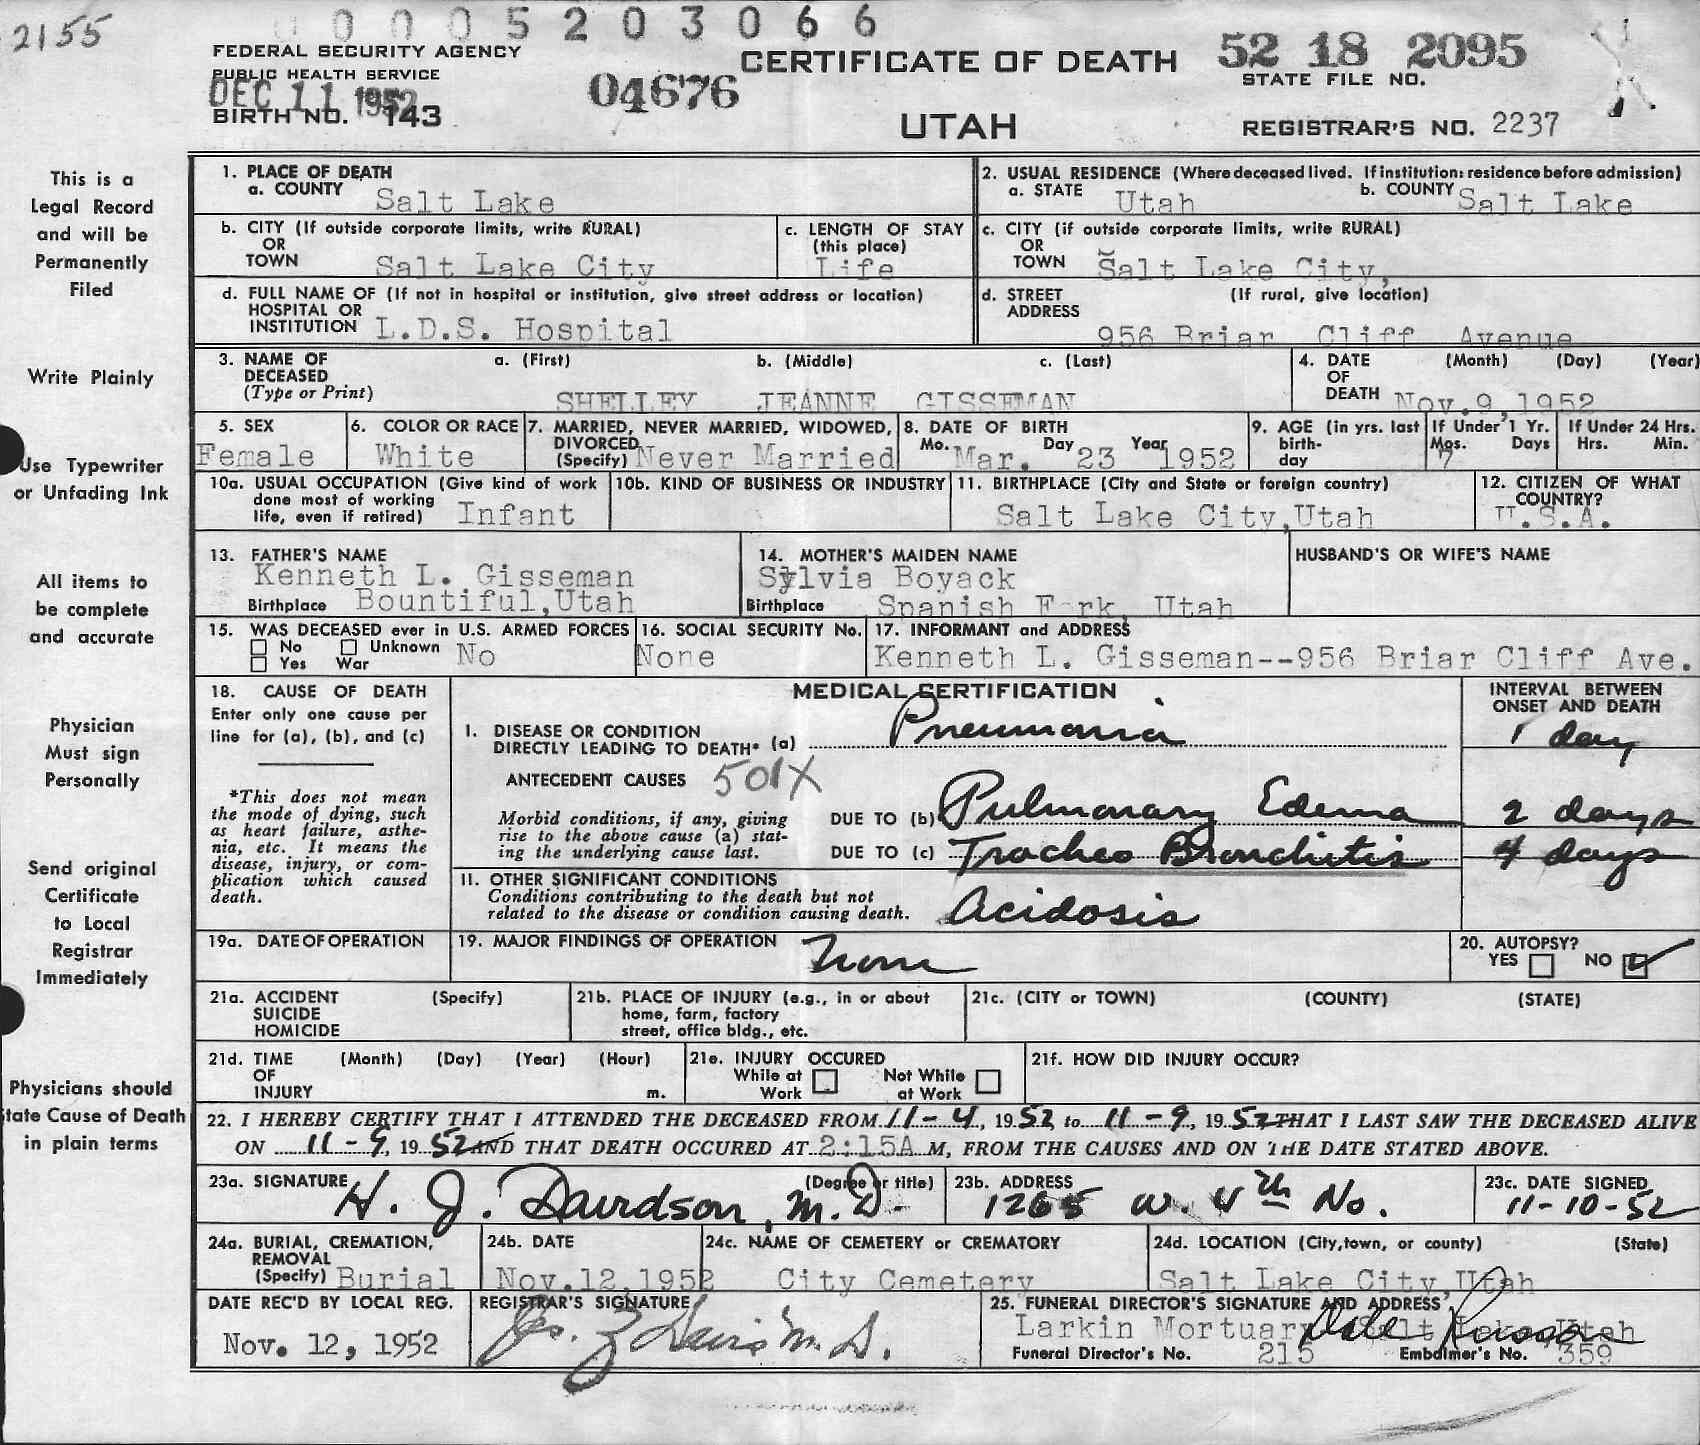 2155
0005203066
FEDERAL SECURITY AGENCY
PUBLIC HEALTH SERVICE
DEC 11 1952
BIRTH NO. 143
04676
CERTIFICATE OF DEATH
UTAH
52 18 2095
STATE FILE NO.
REGISTRAR'S NO. 2237
This is a
Legal Record
and will be
Permanently
Filed
Write Plainly
Use Typewriter
or Unfading Ink
All items to
be complete
and accurate
Physician
Must sign
Personally
Send original
Certificate
to Local
Registrar
Immediately
Physicians should
tate Cause of Death
in plain terms
1. PLACE OF DEATH
a. COUNTY Salt Lake
2. USUAL RESIDENCE (Where deceased lived. If institution: residence before admission)
a. STATE Utah b. COUNTY Salt Lake
b. CITY (If outside corporate limits, write RURAL)
OR
TOWN Salt Lake City
c. LENGTH OF STAY
(this place)
Life
c. CITY (if outside corporate limits, write RURAL)
OR
TOWN Salt Lake City,
d. FULL NAME OF (If not in hospital or institution, give street address or location)
HOSPITAL OR
INSTITUTION L.D.S. Hospital
d. STREET (If rural, give location)
ADDRESS
956 Briar Cliff Avenue
3. NAME OF a. (First) b. (Middle) c. (Last)
DECEASED
(Type or Print) SHELLEY JEANNE GISSEMAN
4. DATE (Month) (Day) (Year)
OF
DEATH Nov.9,1952
5. SEX
Female
6. COLOR OR RACE
White
7. MARRIED, NEVER MARRIED, WIDOWED,
DIVORCED
(Specify) Never Married
8. DATE OF BIRTH
Mo. Mar. Day 23 Year 1952
9. AGE (in yrs. last
birth-
day
If Under 1 Yr.
Mos. Days
7
If Under 24 Hrs.
Hrs. Min.
10a. USUAL OCCUPATION (Give kind of work
done most of working
life, even if retired) Infant
10b. KIND OF BUSINESS OR INDUSTRY
11. BIRTHPLACE (City and State or foreign country)
Salt Lake City,Utah
12. CITIZEN OF WHAT
COUNTRY?
U.S.A.
13. FATHER'S NAME
Kenneth L. Gisseman
Birthplace Bountiful,Utah
14. MOTHER'S MAIDEN NAME
Sylvia Boyack
Birthplace Spanish Fork, Utah
HUSBAND'S OR WIFE'S NAME
15. WAS DECEASED ever in U.S. ARMED FORCES
No Unknown
Yes War
No
16. SOCIAL SECURITY No.
None
17. INFORMANT and ADDRESS
Kenneth L. Gisseman--956 Briar Cliff Ave.
18. CAUSE OF DEATH
Enter only one cause per
line for (a), (b), and (c)
*This does not mean
the mode of dying, such
as heart failure, asthe-
nia, etc. It means the
disease, injury, or com-
plication which caused
death.
MEDICAL CERTIFICATION
INTERVAL BETWEEN
ONSET AND DEATH
I. DISEASE OR CONDITION
DIRECTLY LEADING TO DEATH* (a) Pneumonia 1 day
ANTECEDENT CAUSES 501X
Morbid conditions, if any, giving
rise to the above cause (a) stat-
ing the underlying cause last.
DUE TO (b) Pulmonary Edema 2 days
DUE TO (c) Tracheo Bronchitis 4 days
II. OTHER SIGNIFICANT CONDITIONS
Conditions contributing to the death but not
related to the disease or condition causing death.
Acidosis
19a. DATE OF OPERATION
19. MAJOR FINDINGS OF OPERATION None
20. AUTOPSY?
YES NO
21a. ACCIDENT (Specify)
SUICIDE
HOMICIDE
21b. PLACE OF INJURY (e.g., in or about
home, farm, factory
street, office bldg., etc.
21c. (CITY or TOWN) (COUNTY) (STATE)
21d. TIME (Month) (Day) (Year) (Hour)
OF
INJURY m.
21e. INJURY OCCURED
While at Not While
Work at Work
21f. HOW DID INJURY OCCUR?
22. I HEREBY CERTIFY THAT I ATTENDED THE DECEASED FROM 11-4, 1952 to 11-9, 1952 THAT I LAST SAW THE DECEASED ALIVE
ON 11-9, 1952 AND THAT DEATH OCCURED AT 2:15A M, FROM THE CAUSES AND ON THE DATE STATED ABOVE.
23a. SIGNATURE (Degree or title)
H. J. Davidson, M.D.
23b. ADDRESS
1265 W. 4th No.
23c. DATE SIGNED
11-10-52
24a. BURIAL, CREMATION,
REMOVAL
(Specify) Burial
24b. DATE
Nov.12,1952
24c. NAME OF CEMETERY or CREMATORY
City Cemetery
24d. LOCATION (City,town, or county) (State)
Salt Lake City,Utah
DATE REC'D BY LOCAL REG.
Nov. 12, 1952
REGISTRAR'S SIGNATURE
M.D.
25. FUNERAL DIRECTOR'S SIGNATURE AND ADDRESS
Larkin Mortuary Salt Lake, Utah
Dale
Funeral Director's No. 215 Embalmer's No. 359